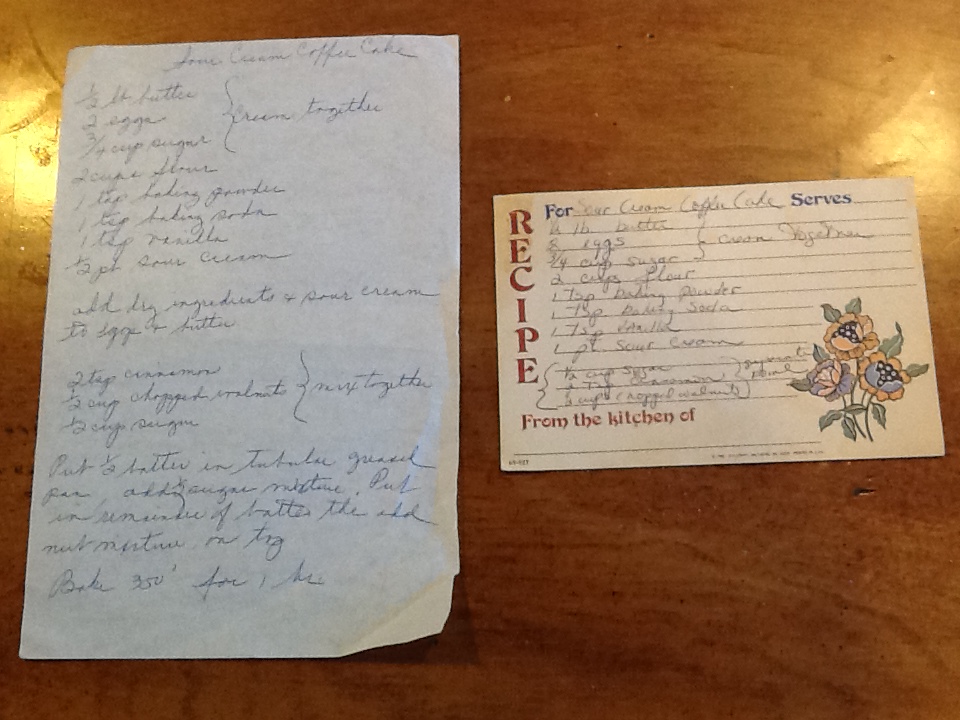 Sour Cream Coffee Cake
½ lb butter
2 eggs
¾ cup sugar
cream together
2 cups flour
1 tsp baking powder
1 tsp baking soda
1 tsp vanilla
½ pt sour cream
add dry ingredients + sour cream
to eggs + butter
2 tsp cinnamon
½ cup chopped walnuts
½ cup sugar
mix together
Put ½ batter in tubular greased
pan, add ½ sugar mixture. Put
in remainder of batter the add
nut mixture on top
Bake 350° for 1 hr
RECIPE
For Sour Cream Coffee Cake Serves
lb. butter
eggs
¾ cup sugar
cream together
2 cups flour
1 Tsp baking powder
1 Tsp Baking Soda
1 Tsp Vanilla
1 pt. Sour Cream
cup sugar
Tsp cinnamon
cup chopped walnuts
separate
bowl
From the kitchen of